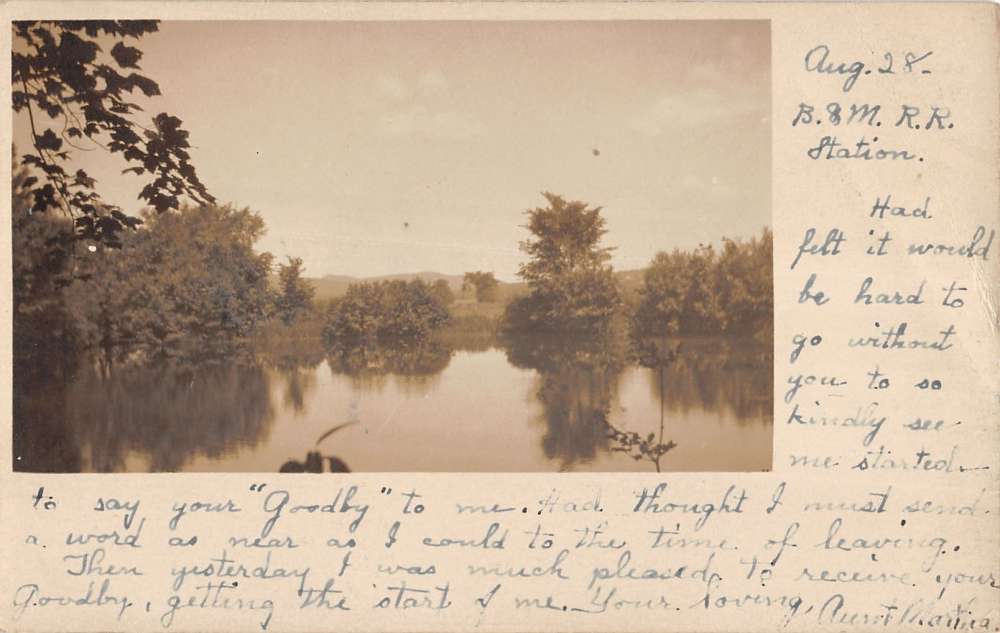 Aug. 28-
B. & M. R.R.
Station.
Had
felt it would
be hard to
go without
you to so
kindly see
me started
to say your "Goodby" to me. Had thought I must send
a word as near as I could to the time of leaving.
Then yesterday I was much pleased to receive your
Goodby, getting the start of me. Your loving Aunt